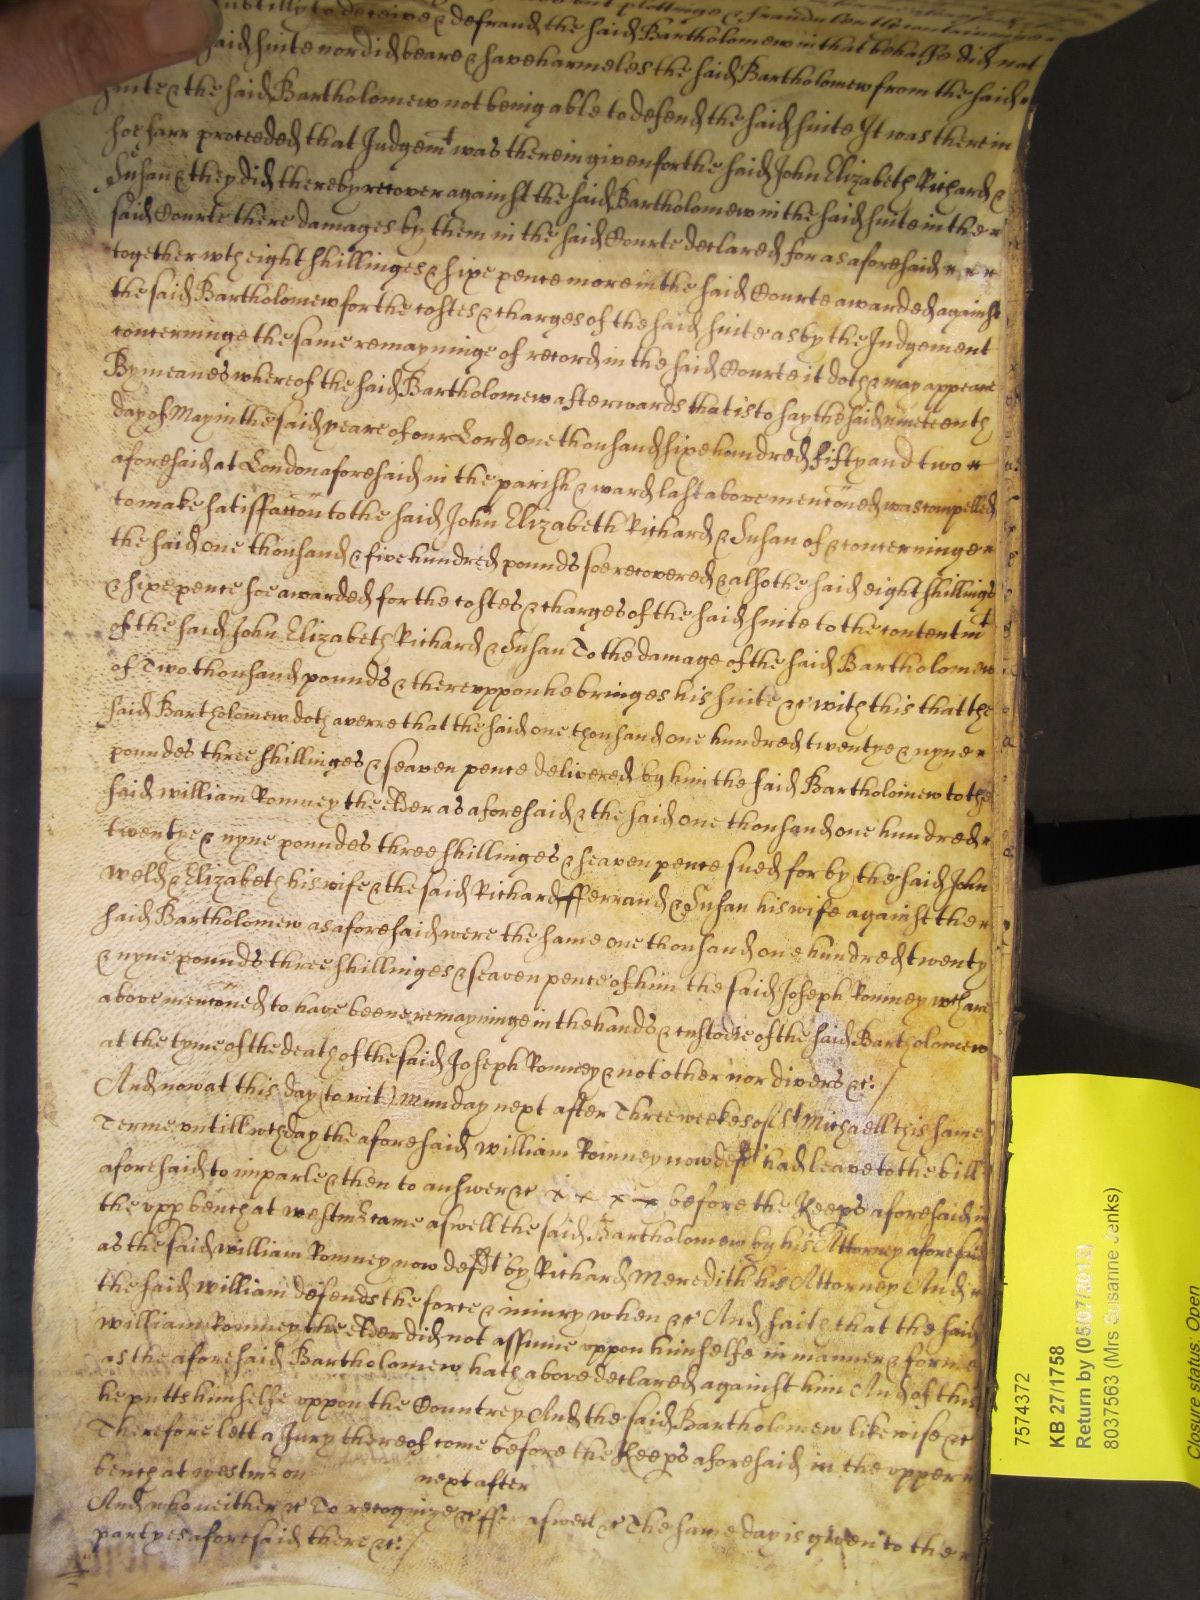 subtilly to deceive & defraud the said Bartholomew in that behalfe did not
said suite nor did beare & save harmeles the said Bartholomew from the said
suite & the said Bartholomew not being able to defend the said suite It was therein
soe farr proceeded that Judgemt was therein given for the said John Elizabeth Richard &
Susan & they did thereby recover against the said Bartholomew in the said suite in the
said Courte there damages by them in the said Courte declared for as aforesaid
together wth eight shillinges & sixe pence more in the said Courte awarded against
the said Bartholomew for the costes & charges of the said suite as by the Judgement
concerninge the same remayninge of record in the said Courte it doth & may appeare
By meanes whereof the said Bartholomew afterwards that is to say the said nineteenth
day of May in the said yeare of our Lord one thousand sixe hundred fifty and two
aforesaid at London aforesaid in the parish & ward last above menconed was compelled
to make satisfaccon to the said John Elizabeth Richard & Susan of & concerninge
the said one thousand & five hundred pounds soe recovered & alsoe the said eight shillings
& sixe pence soe awarded for the costes & charges of the said suite to the contentmt
of the said John Elizabeth Richard & Susan To the damage of the said Bartholomew
of Two thousand pounds & thereuppon he bringes his suite &c with this that the
said Bartholomew doth averre that the said one thousand one hundred twentye & nyne
poundes three shillinges & seaven pence delivered by him the said Bartholomew to the
said William Romney the elder as aforesaid & the said one thousand one hundred
twentye & nyne poundes three shillinges & seaven pence sued for by the said John
Weld & Elizabeth his wife & the said Richard fferrand & Susan his wife against the
said Bartholomew as aforesaid were the same one thousand one hundred twenty
& nyne pounds three shillinges & seaven pence of him the said Joseph Romney wch are
above menconed to have beene remayninge in the hands & custodie of the said Bartholomew
at the tyme of the death of the said Joseph Romney & not other nor divers &c:/
And now at this day (to wit) Munday next after Three weekes of St Michaell this same
Terme untill wch day the aforesaid William Romney now deft had leave to the bill
aforesaid to imparle & then to answer &c x x x x before the Keeps aforesaid in
the upp bench at Westmr came aswell the said Bartholomew by his Attorney aforesaid
as the said William Romney now defdt by Richard Meredith his Attorney And
the said William defends the force & iniury when &c And saith that the said
William Romney the elder did not assume uppon himselfe in manner & forme
as the aforesaid Bartholomew hath above declared against him And of this
he putts himselfe uppon the Countrey And the said Bartholomew likewise &c
Therefore lett a Jury thereof come before the Keeps aforesaid in the upper
bench at Westmr on next after
And who neither &c To recognize &c aswell &c The same day is given to the
partyes aforesaid there &c:/
7574372
KB 27/1758
Return by (05/07/2013)
8037563 (Mrs Susanne Jenks)
Closure status: Open